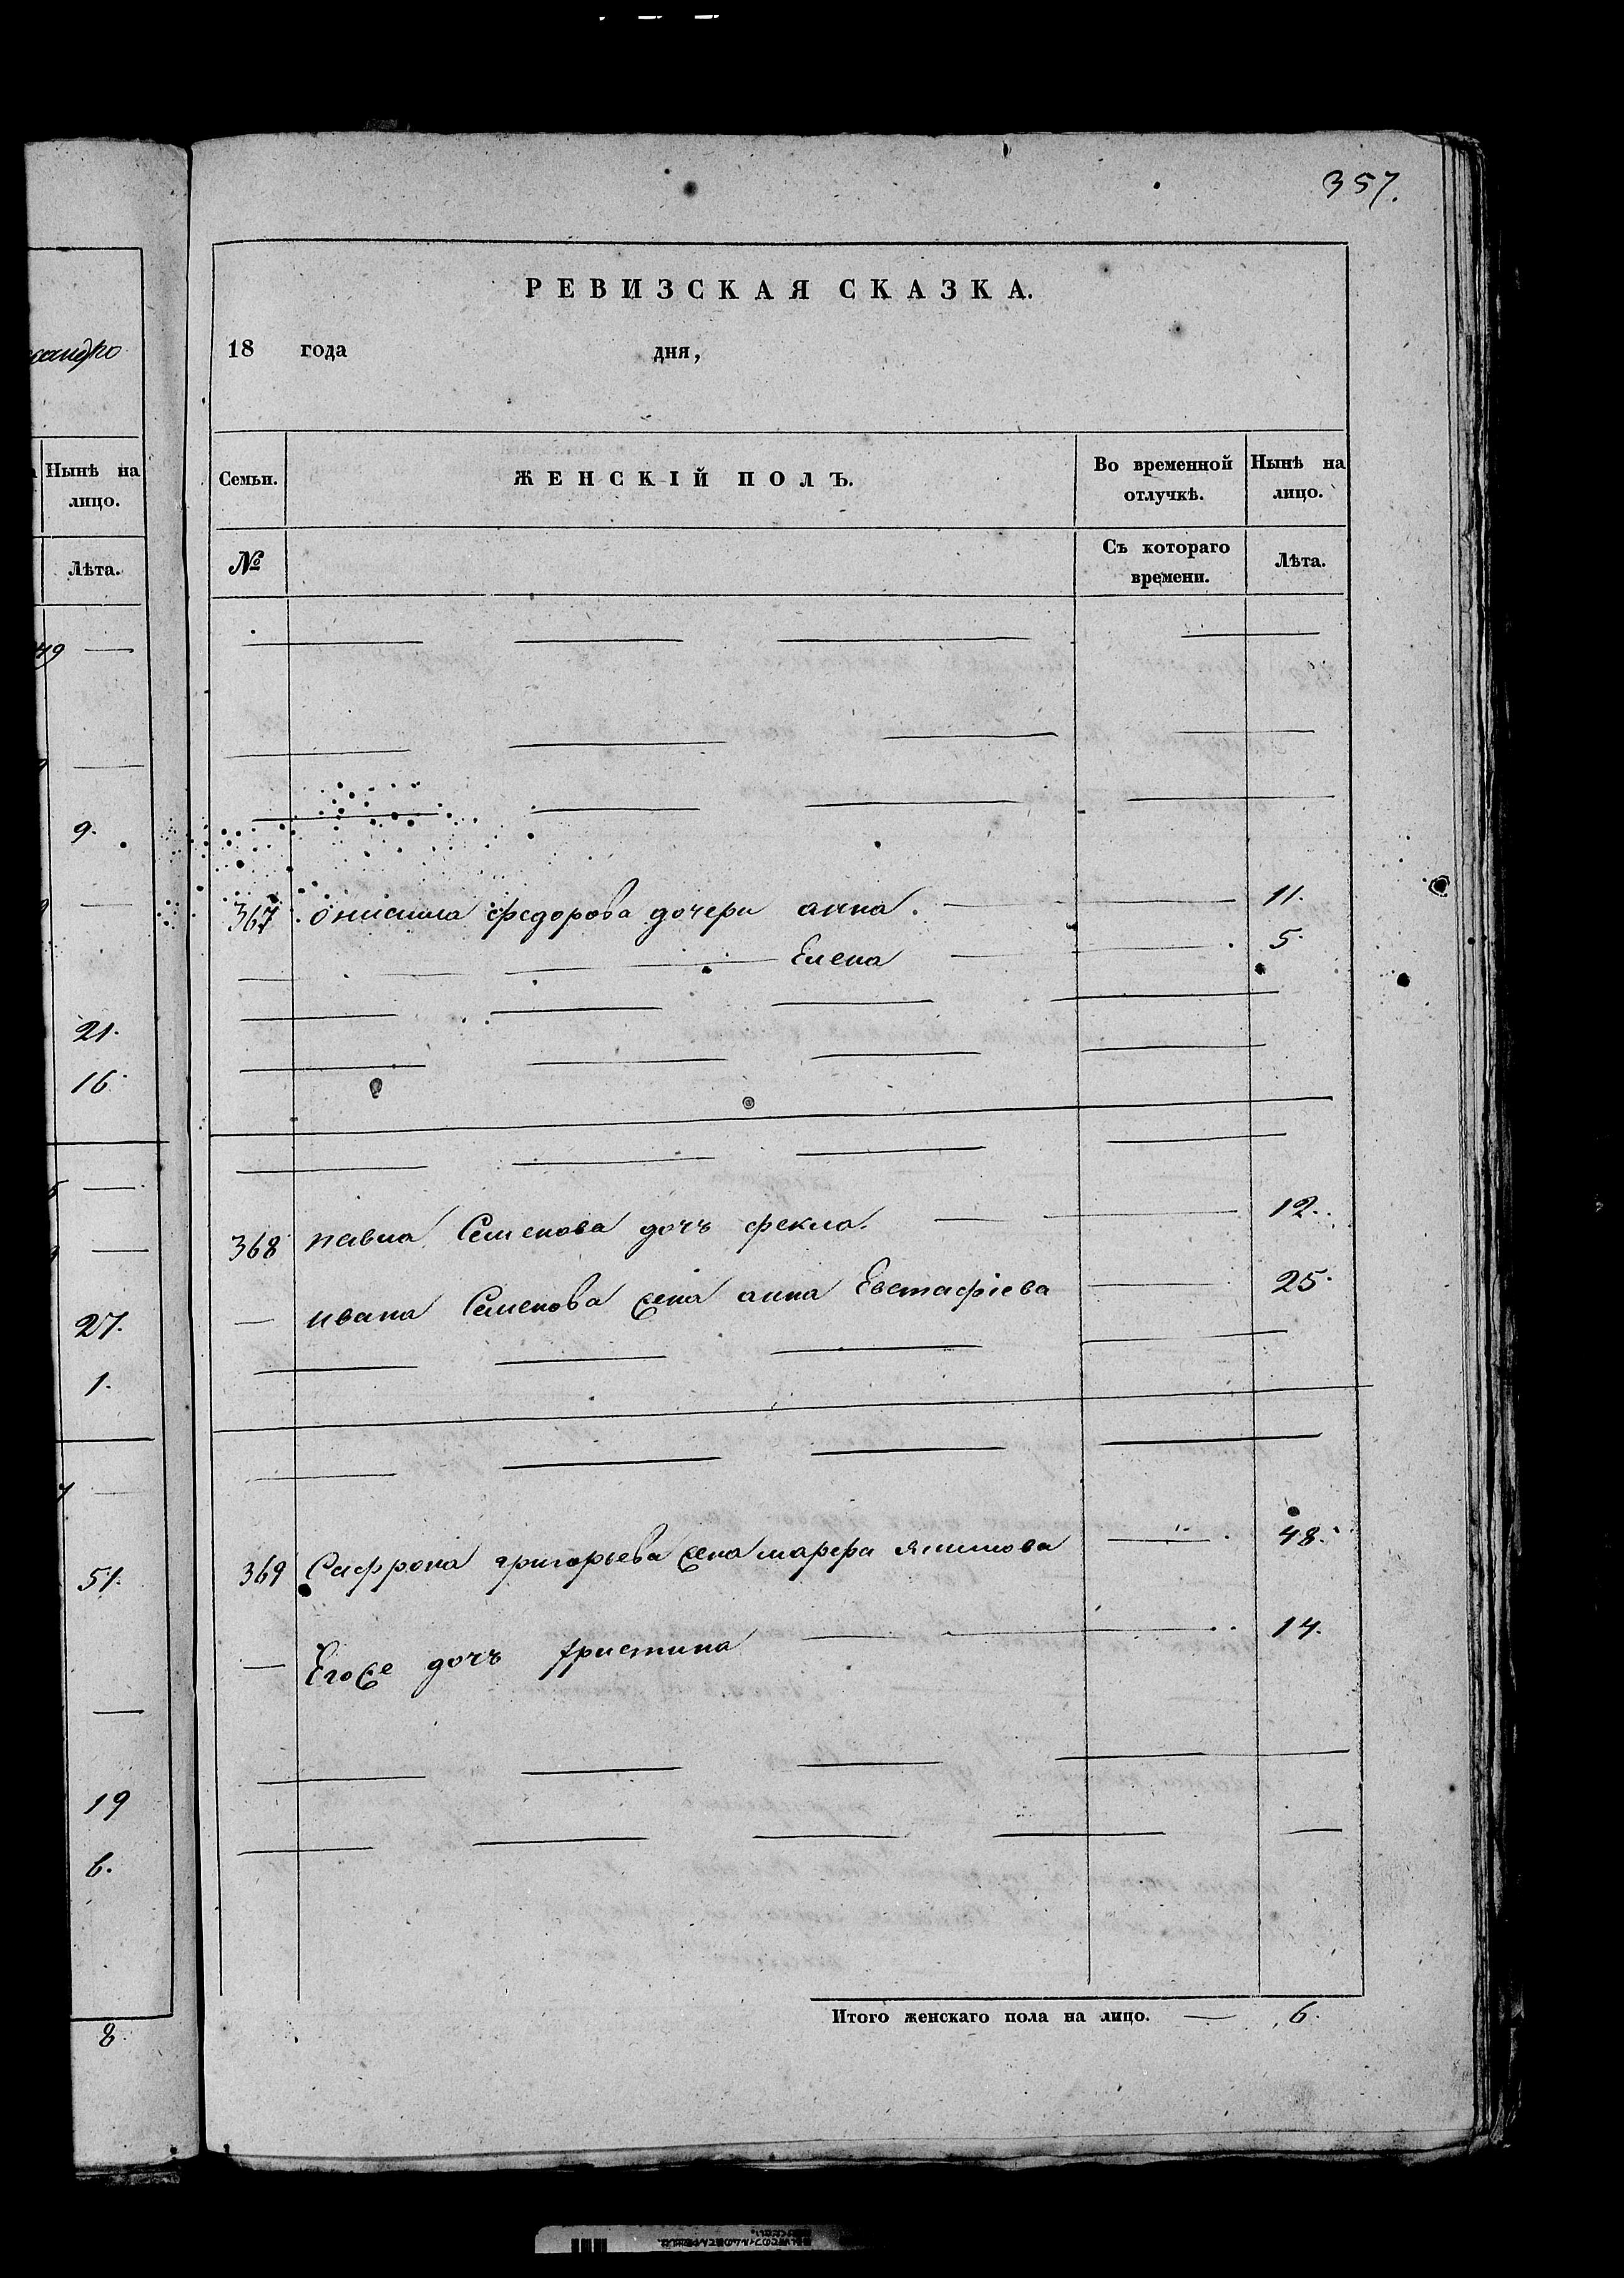 357.
сандро
РЕВИЗСКАЯ СКАЗКА.
18 года дня,
Нынѣ на
лицо.
Лѣта.
Семьи.
ЖЕНСКІЙ ПОЛЪ.
Во временной
отлучкѣ.
Нынѣ на
лицо.
№
Съ котораго
времени.
Лѣта.
9.
21.
16.
27.
1.
51.
19
6.
8.
367 Онисима Федорова дочери анна. 11.
Елена 5.
368 павла Семенова дочь фекла. 12.
ивана Семенова жена анна Евстафіева 25.
369 Сафрона григорьева жена марфа якимова 48.
Его же дочь христина 14.
Итого женскаго пола на лицо. 6.